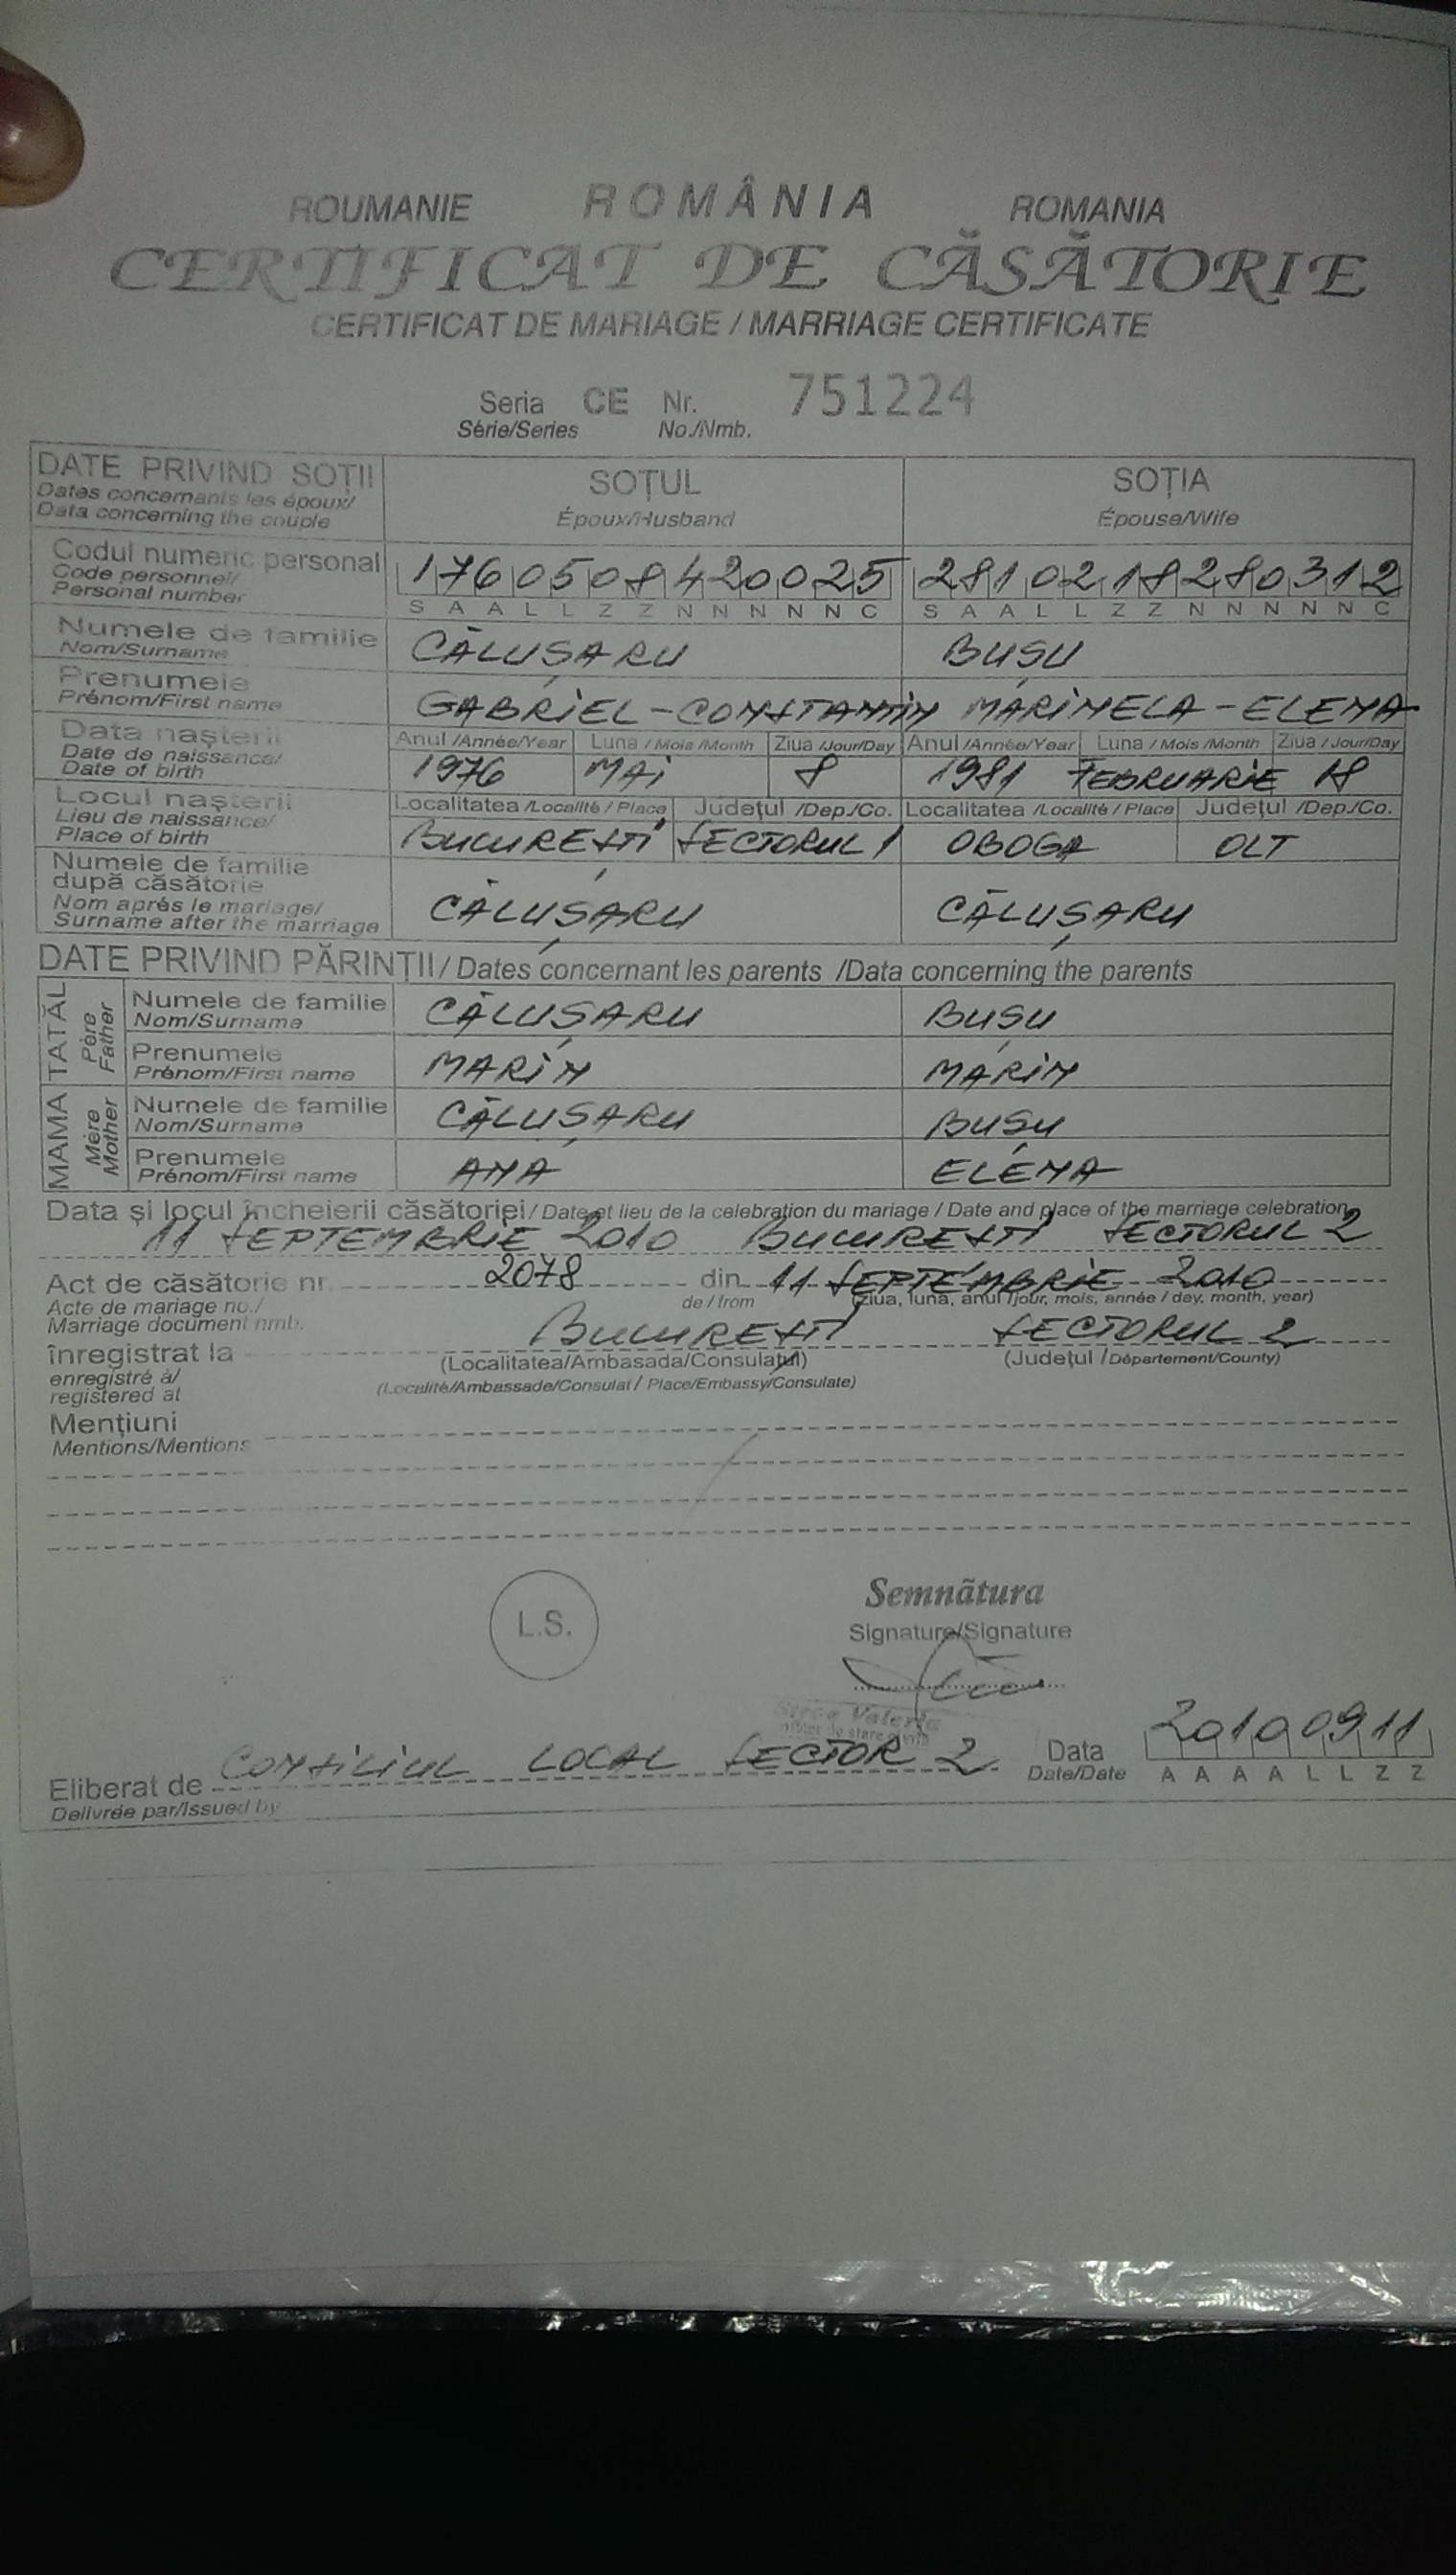 ROUMANIE ROMÂNIA ROMANIA
CERTIFICAT DE CĂSĂTORIE
CERTIFICAT DE MARIAGE / MARRIAGE CERTIFICATE
Seria CE Nr. 751224
Série/Series No./Nmb.
DATE PRIVIND SOȚII SOȚUL SOȚIA
Dates concernants les époux/ Époux/Husband Épouse/Wife
Data concerning the couple
Codul numeric personal 1760508420025 2810218280312
Code personnel/
Personal number S A A L L Z Z N N N N N C S A A L L Z Z N N N N N C
Numele de familie CĂLUȘARU BUȘU
Nom/Surname
Prenumele GABRIEL-CONSTANTIN MARINELA-ELENA
Prénom/First name
Data nașterii Anul /Année/Year Luna / Mois /Month Ziua /Jour/Day Anul /Année/Year Luna / Mois /Month Ziua / Jour/Day
Date de naissance/ 1976 MAI 8 1981 FEBRUARIE 18
Date of birth
Locul nașterii Localitatea /Localité / Place Județul /Dep./Co. Localitatea /Localité / Place Județul /Dep./Co.
Lieu de naissance/ BUCUREȘTI SECTORUL 1 OBOGA OLT
Place of birth
Numele de familie
după căsătorie CĂLUȘARU CĂLUȘARU
Nom aprés le mariage/
Surname after the marriage
DATE PRIVIND PĂRINȚII / Dates concernant les parents /Data concerning the parents
TATĂL Père Father
Numele de familie CĂLUȘARU BUȘU
Nom/Surname
Prenumele MARIN MARIN
Prénom/First name
MAMA Mère Mother
Numele de familie CĂLUȘARU BUȘU
Nom/Surname
Prenumele ANA ELENA
Prénom/First name
Data și locul încheierii căsătoriei / Date et lieu de la celebration du mariage / Date and place of the marriage celebration
11 SEPTEMBRIE 2010 BUCUREȘTI SECTORUL 2
Act de căsătorie nr. 2078 din 11 SEPTEMBRIE 2010
Acte de mariage no./ de / from (ziua, luna, anul /jour, mois, année / day, month, year)
Marriage document nmb.
înregistrat la BUCUREȘTI SECTORUL 2
enregistré à/ (Localitatea/Ambasada/Consulatul) (Județul /Département/County)
registered at (Localité/Ambassade/Consulat / Place/Embassy/Consulate)
Mențiuni
Mentions/Mentions
L.S. Semnătura
Signature/Signature
Valeria
Eliberat de CONSILIUL LOCAL SECTOR 2 Data 20100911
Delivrée par/Issued by Date/Date A A A A L L Z Z